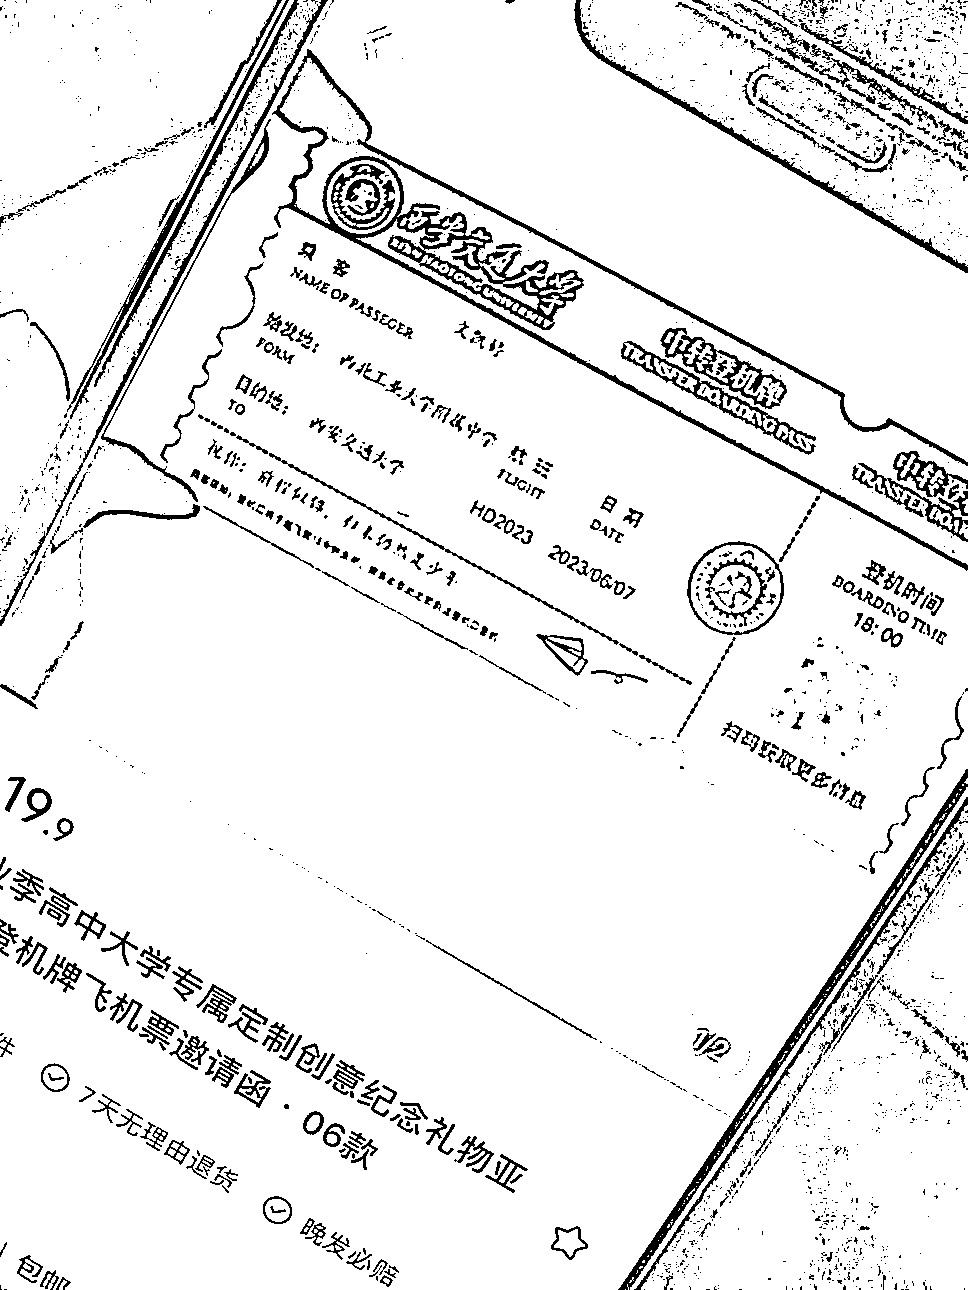 西安交通大学
XI'AN JIAOTONG UNIVERSITY
中转登机牌
TRANSFER BOARDING PASS
中转登
TRANSFER BOAR
NAME OF PASSEGER
始发地: 西北工业大学附属中学
FORM
目的地: 西安交通大学
TO
航班
FLIGHT
HD2023
日期
DATE
2023/06/07
登机时间
BOARDING TIME
18:00
扫码获取更多信息
1/2
19.9
业季高中大学专属定制创意纪念礼物亚
登机牌飞机票邀请函·06款
件
7天无理由退货
晚发必赔
包邮